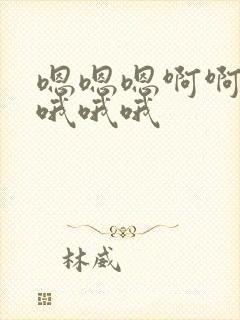 嗯嗯嗯啊啊
哦哦哦
林威